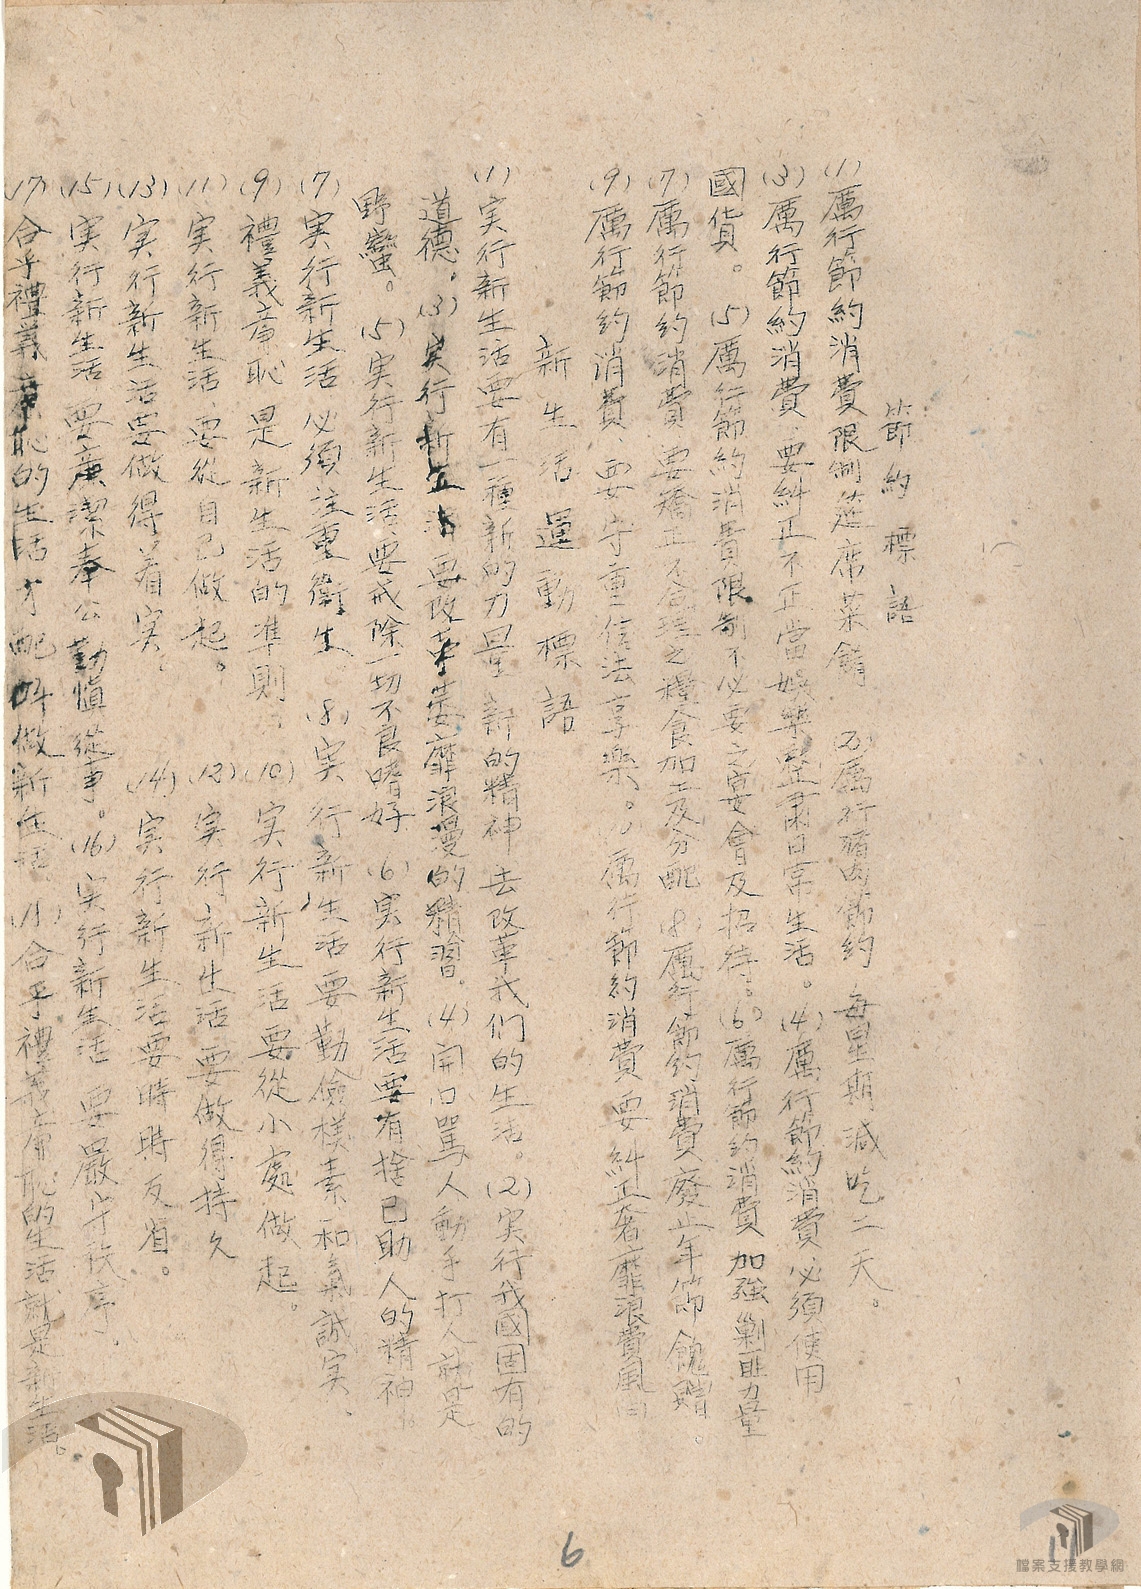 節約標語
(1)厲行節約消費限制筵席菜餚 (2)厲行豬肉節約 每星期減吃二天。
(3)厲行節約消費、要糾正不正當娛樂整肅日常生活。(4)厲行節約消費 必須使用
國貨。 (5)厲行節約消費限制不必要之宴會及招待。(6)厲行節約消費 加強剿匪力量
(7)厲行節約消費 要矯正不合理之糧食加工及分配 (8)厲行節約消費廢止年節餽贈。
(9)厲行節約消費、要守重信法享樂。 厲行節約消費要糾正奢靡浪費風
新生活運動標語
(1)実行新生活要有一種新的力量 新的精神 去改革我们的生活。(2)実行我國固有的
道德。(3)実行新生活 要改革萎靡浪漫的積習。(4)開口罵人動手打人就是
野蠻。 (5)実行新生活要戒除一切不良嗜好 (6)実行新生活要有捨己助人的精神
(7)実行新生活 必須注重衛生 (8)実行新生活要勤儉樸素和氣誠実.
(9)禮義亷恥 是新生活的准則. (10)実行新生活要從小處做起。
(11)実行新生活 要從自己做起。 (12)実行新生活要做得持久
(13)実行新生活要做得着実. (14)実行新生活要時時反省。
(15)実行新生活 要亷潔奉公勤慎從事。(16)実行新生活 要嚴守秩序.
(17)合乎禮義亷恥的生活才配叫做新生活 (18)合乎禮義亷恥的生活就是新生活。
6
11
檔案支援教學網